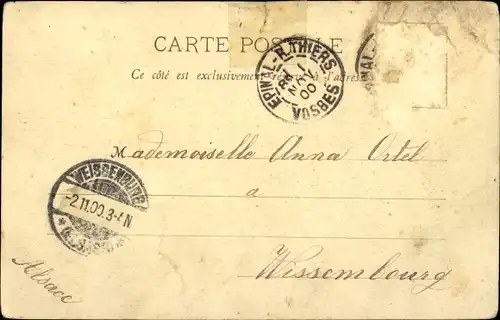 CARTE POSTALE
Ce côté est exclusivement réservé à l'adresse
EPINAL - R. THIERS
1
NOV
00
VOSGES
M Mademoiselle Anna Ortel
a
Wissembourg
Alsace
WEISSENBURG
-2.11.00.3-4N.